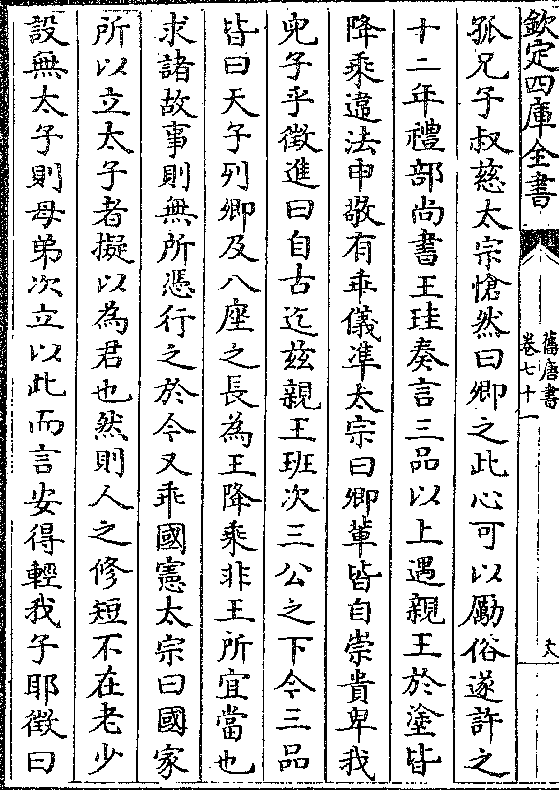 欽定四庫全書
舊唐書
卷七十一
孤兄子叔慈太宗愴然曰卿之此心可以勵俗遂許之
十二年禮部尚書王珪奏言三品以上遇親王於塗皆
降乘違法申敬有乖儀準太宗曰卿輩皆自崇貴卑我
兒子乎徵進曰自古迄茲親王班次三公之下今三品
皆曰天子列卿及八座之長為王降乘非王所宜當也
求諸故事則無所憑行之於今又乖國憲太宗曰國家
所以立太子者擬以為君也然則人之修短不在老少
設無太子則母弟次立以此而言安得輕我子耶徵曰